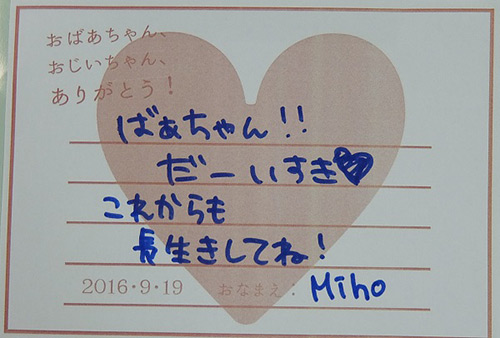 おばあちゃん、
おじいちゃん、
ありがとう!
ばぁちゃん!!
だーいすき♥
これからも
長生きしてね!
2016・9・19 おなまえ: Miho